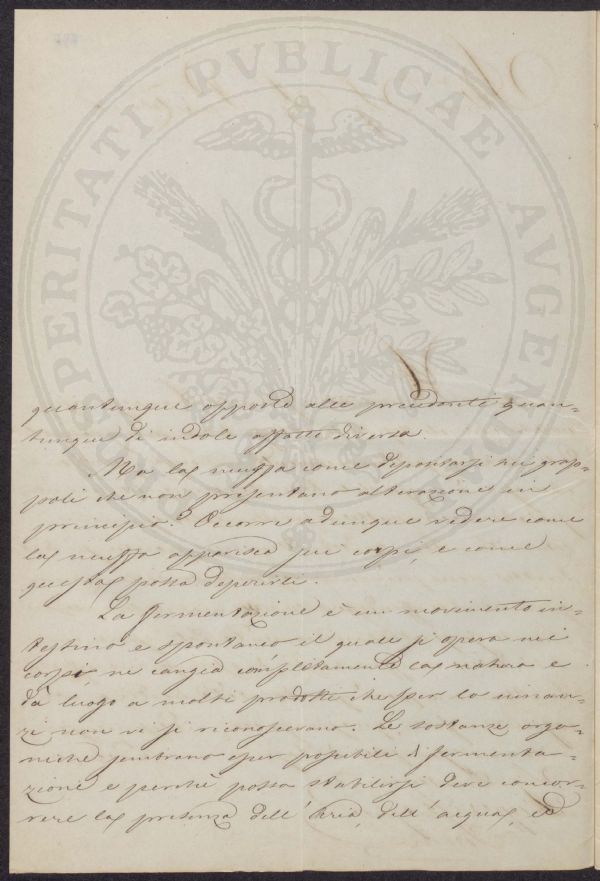 PROSPERITATI PVBLICAE AVGENDAE
quantunque opposte alle precedenti quan-
tunque di indole affatto diversa.
Ma la muffa come depositarsi nei grap-
poli che non presentano alterazione in
principio? Occorre adunque vedere come
la muffa apparisca sui corpi, e come
questa possa deperirli.
La fermentazione è un movimento in-
testino e spontaneo il quale si opera nei
corpi, ne cangia completamente la natura e
dà luogo a molti prodotti che per lo innan-
zi non vi si riconoscevano. Le sostanze orga-
niche sembrano esser possibili di fermenta-
zione e perchè possa stabilirsi deve concor-
rere la presenza dell' aria, dell' acqua, ed